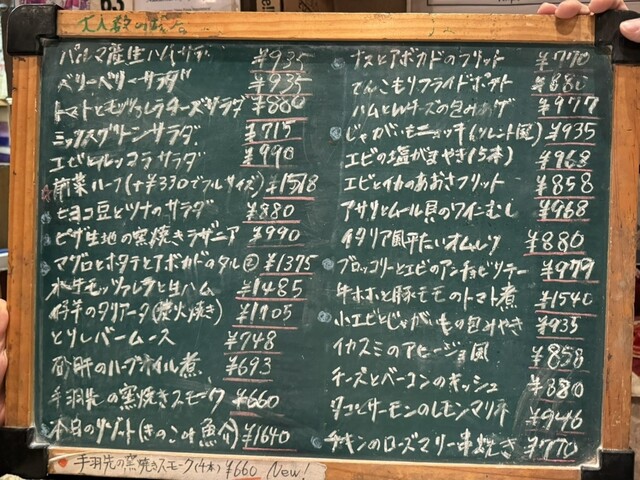 大人数の
パルマ産生ハムサラダ ¥935
ベリーベリーサラダ ¥935
トマトとモッツァレラチーズサラダ ¥880
ミックスグリーンサラダ ¥715
エビとルッコラサラダ ¥990
前菜ハーフ(+¥330でフルサイズ) ¥1518
ヒヨコ豆とツナのサラダ ¥880
ピザ生地の窯焼きラザニア ¥990
マグロとホタテとアボカドのタル ¥1375
水牛モッツァレラと生ハム ¥1485
仔羊のタリアータ(炭火焼き) ¥1705
とりレバームース ¥748
砂肝のハーブオイル煮 ¥693
手羽先の窯焼きスモーク ¥660
本日のリゾット(きのこor魚介) ¥1640
ナスとアボカドのフリット ¥770
てんこもりフライドポテト ¥880
ハムとWチーズの包みあげ ¥977
じゃがいもニョッキ(ソレント風) ¥935
エビの塩がまやき(5本) ¥968
エビとイカのあおさフリット ¥858
アサリとムール貝のワインむし ¥968
イタリア風平たいオムレツ ¥880
ブロッコリーとエビのアンチョビソテー ¥979
牛ホホと豚モモのトマト煮 ¥1540
小エビとじゃがいもの包みやき ¥935
イカスミのアヒージョ風 ¥858
チーズとベーコンのキッシュ ¥880
タコとサーモンのレモンマリネ ¥946
チキンのローズマリー串焼き ¥770
手羽先の窯焼きスモーク(4本) ¥660 New!